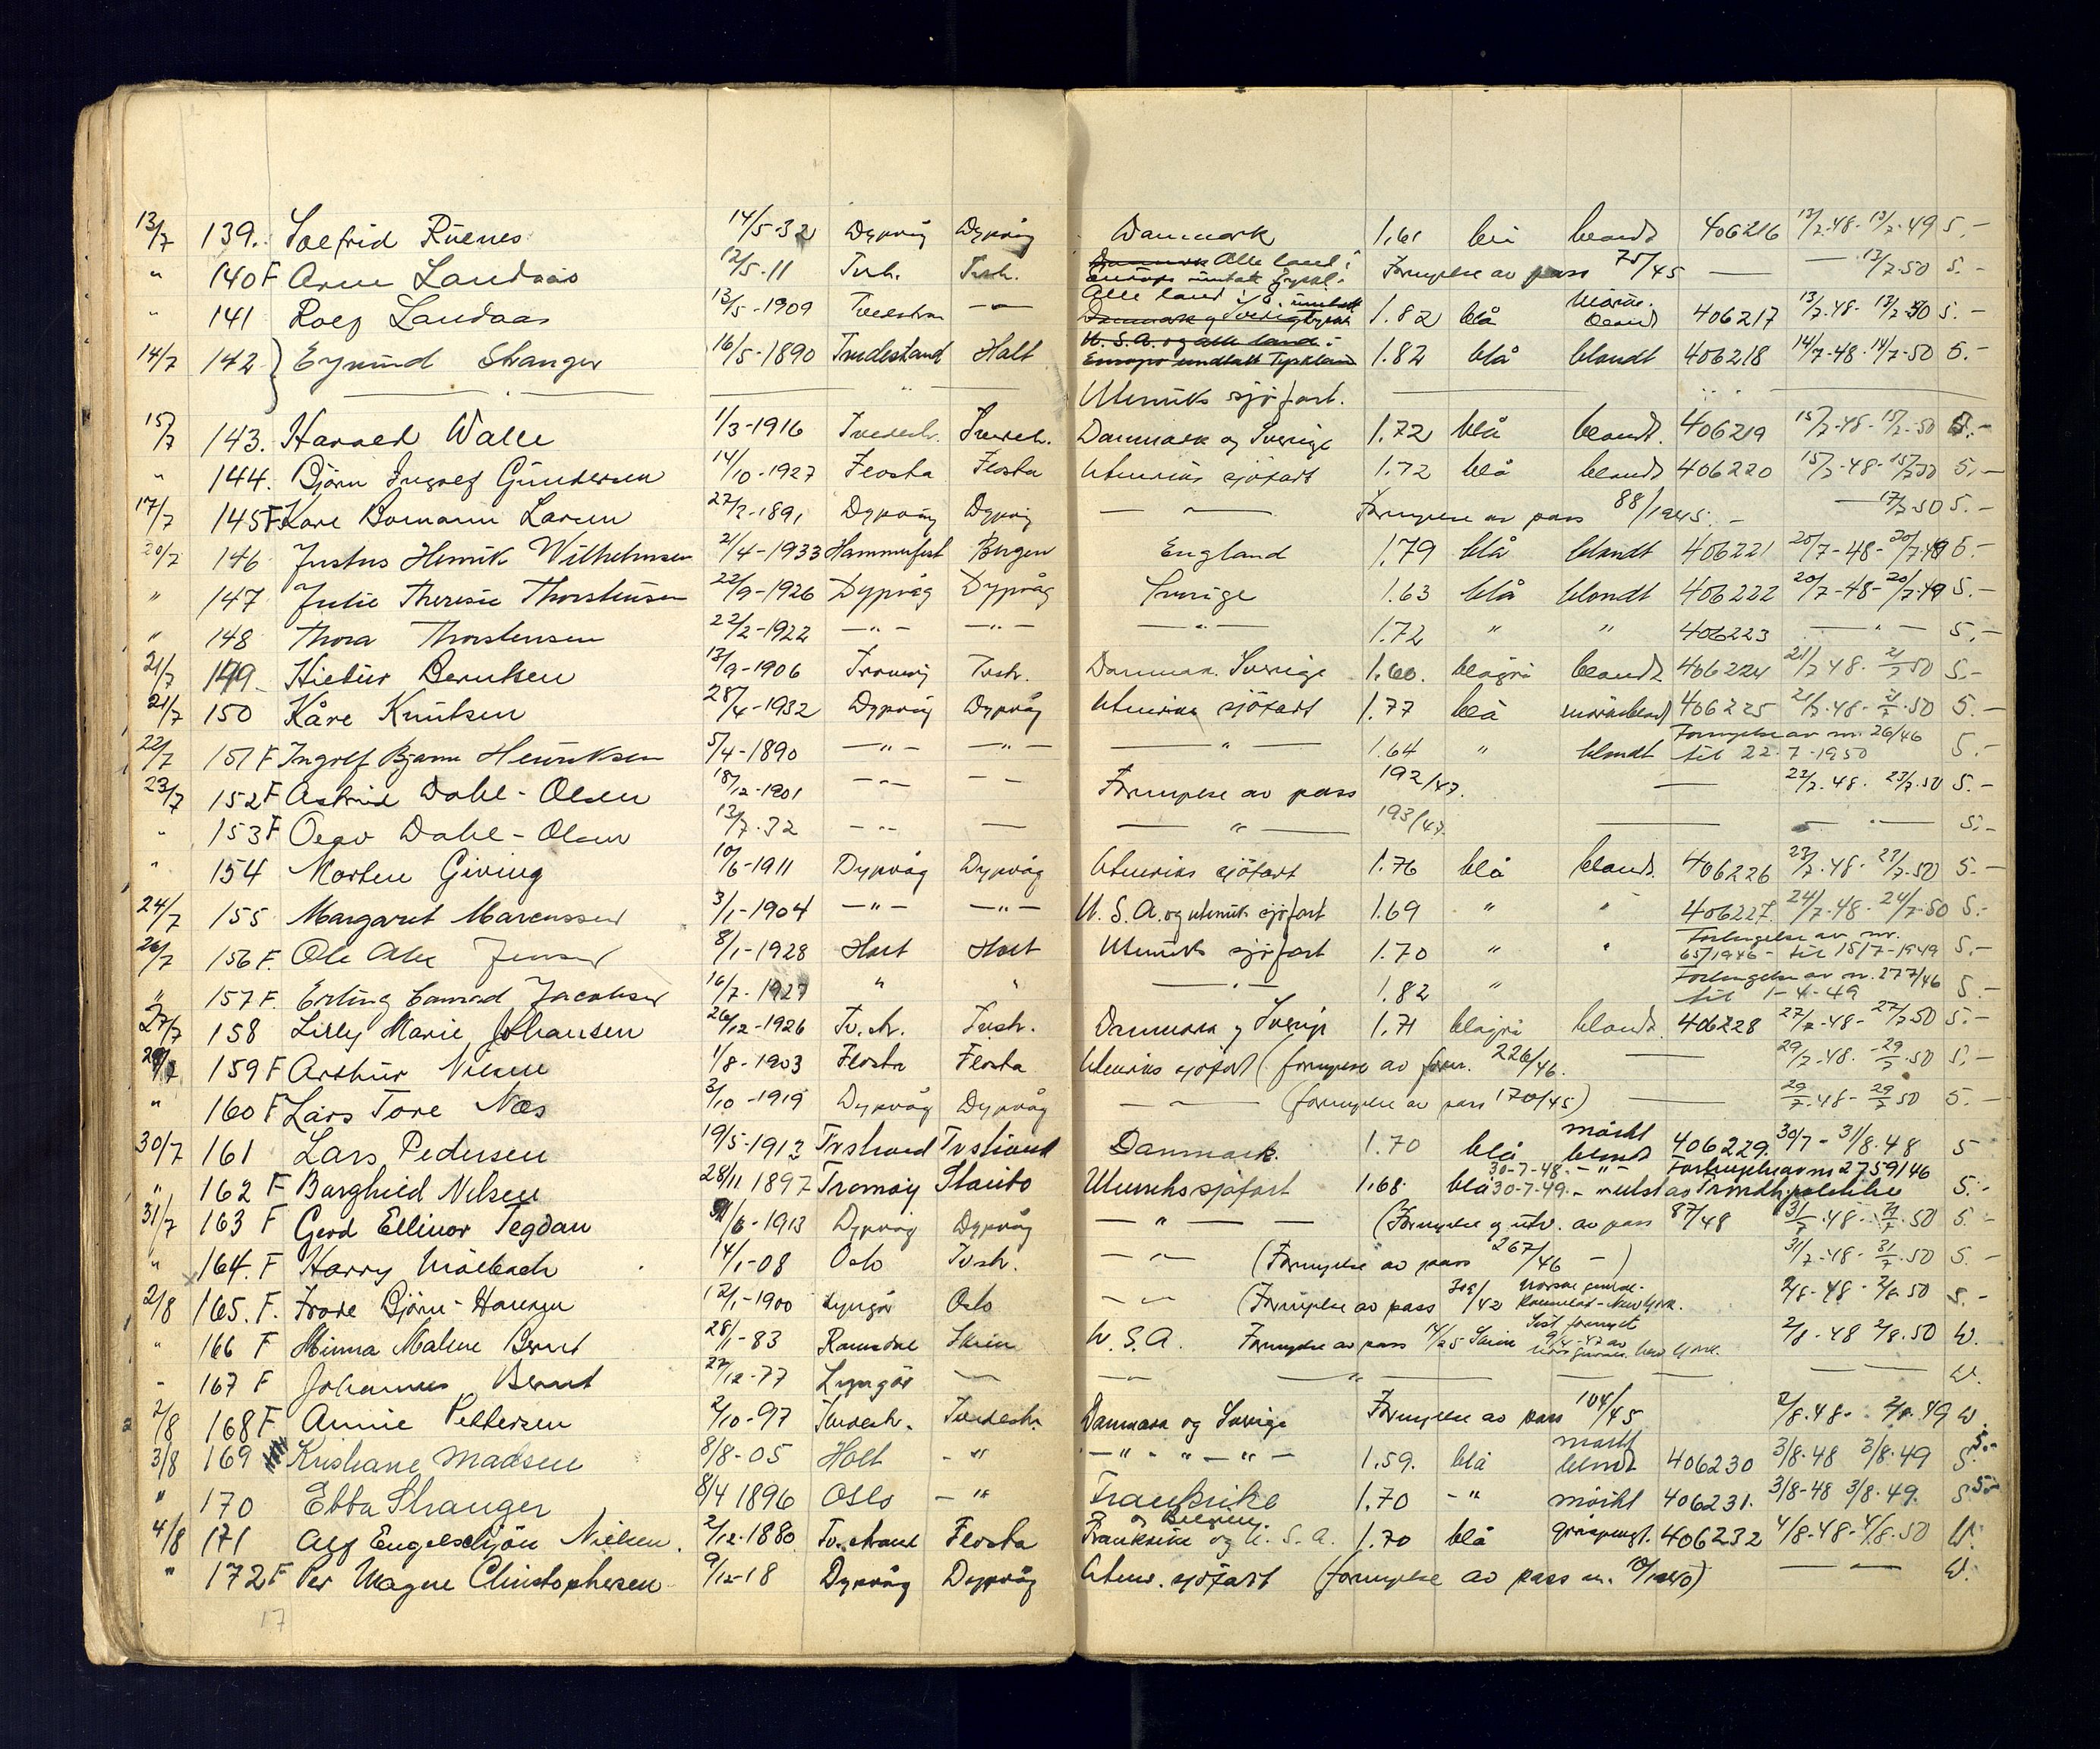 13/7 139. Solfrid Rüenes 14/5-32 Dypvåg Dypvåg Danmark 1.61 blå blondt 406216 13/7-48-13/7-49 5.-
" 140 F Arne Landaas 12/5-11 Tvsh. Tvsh. Danmark Alle land i Europa untatt Tyskl. Fornyelse av pass 75/45 — — 13/7-50 5.-
" 141 Rolf Landaas 13/5-1909 Tvedestran — " — Alle land i E. untatt Danmark og Sverige Tyskl. 1.82 blå mörke blond 406217 13/7-48-13/7-50 5.-
14/7 142 Eymund Stranger 16/5-1890 Tvedestrand Holt U.S.A. og alle land i Europa undtatt Tyskland 1.82 blå blondt 406218 14/7-48-14/7-50 5.-
— " — Utenriks sjöfart. —
15/7 143. Harald Walle 1/3-1916 Tvedestr. Tvedestr. Danmark og Sverige 1.72 blå blondt. 406219 15/7-48-15/7-50 5.-
" 144. Björn Ingolf Gundersen 14/10-1927 Flosta Flosta Utenriks sjöfart 1.72 blå blondt 406220 15/7-48-15/7-50 5.-
17/7 145 F Kare Bomann Larsen 27/2-1891 Dypvåg Dypvåg — " — Fornyelse av pass 88/1945. - — 17/7-50 5.-
20/7 146 Justus Henrik Wilhelmsen 21/4-1933 Hammerfest Bergen England 1.79 blå blondt 406221 20/7-48-20/7-49 5.-
" 147 Julie Theresie Thorstensen 22/9-1926 Dypvåg Dypvåg Sverige 1.63 blå blondt 406222 20/7-48-20/7-49 5.-
" 148 Thora Thorstensen 22/2-1922 — " — — " — — " — 1.72 " " 406223 — " — 5.-
21/7 149. Hildur Berntsen 13/9-1906 Tromöy Tvstr. Danmark. Sverige 1.60. blågrå blondt 406224 21/7-48-21/7-50 5.-
21/7 150 Kåre Knutsen 28/4-1932 Dypvåg Dypvåg Utenriks sjöfart 1.77 blå mörkblond 406225 21/7-48-21/7-50 5.-
22/7 151 F Ingolf Bjarne Henriksen 5/4-1890 — " — — " — — " — 1.64 " blondt Fornyelse av nr. 26/46 til 22-7-1950 5.-
23/7 152 F Astrid Dahl-Olsen 18/12-1901 — " — — " — Fornyelse av pass 192/47. — 23/7-48-23/7-50 5.-
" 153 F Olav Dahl-Olsen 13/7-32 — " — — — " — 193/47. — — " — 5.-
" 154 Morten Giving 10/6-1911 Dypvåg Dypvåg Utenriks sjöfart 1.76 blå blondt. 406226 23/7-48-23/7-50 5.-
24/7 155 Margaret Marcussen 3/1-1904 — " — — " — U.S.A. og utenriks sjöfart 1.69 " " 406227. 24/7-48-24/7-50 5.-
26/7 156 F. Ole Jensen 8/1-1928 Holt Holt Utenriks sjöfart 1.70 " " Forlengelse av nr. 65/1946 - til 15/7-1949 5.-
" 157 F. Erling Conrad Jacobsen 16/7-1927 " " — " — 1.82 " Forlengelse av nr. 277/46 til 1-4-49 5.-
27/7 158 Lilly Marie Johansen 26/12-1926 Tv.str. Tvstr. Danmark og Sverige 1.71 blågrå blondt 406228 27/7-48-27/7-50 5.-
29/7 159 F Arthur Nilsen 1/8-1903 Flosta Flosta Utenriks sjöfart (fornyelse av forn. 226/46. — 29/7-48-29/7-50 5.-
" 160 F Lars Tore Næs 3/10-1919 Dypvåg Dypvåg — " — (fornyelse av pass 170/45) — 29/7-48-29/7-50 5.-
30/7 161 Lars Pedersen 19/5-1913 Tvstrand Tvstrand Danmark. 1.70 blå mörkt blondt 406229. 30/7-31/8-48 5
" 162 F Borghild Nilsen 28/11 1897 Tromöy Staubo Utenriks sjøfart 1.68. blå 30-7-48. - " - Forlengelse av nr 2759/46 30-7-49. - utst av Trondh. politik. 5.-
31/7 163 F Gerd Ellinor Tegdan 31/6-1913 Dypvåg Dypvåg — " — (Fornyelse og utv. av pass 87/48 31/7-48-31/7-50 5.-
" 164. F Harry Mölbach 14/1-08 Oslo Tvstr. — " — (Fornyelse av pass 267/46 - ) 31/7-48-31/7-50 5.-
2/8 165. F. Frode Björn-Hansen 12/1-1900 Lyngör Oslo — " — (Fornyelse av pass 308/42 Norske general- konsulat-New York. 2/8-48-2/8-50 5.-
" 166 F Minna Malene Bernt 28/1-83 Ramsdal Skien U.S.A. Fornyelse av pass 14/25 Skien Sist fornyet 9/4-47 av Nor. New York. 2/8-48 2/8-50 W.
- 167 F Johannes Bernt 27/12-77 Lyngör — " — — " — — " — — — W.
2/8 168 F Annie Pettersen 2/10-97 Tvedestr. Tvedestr. Danmark og Sverige Fornyelse av pass 104/45 2/8-48- 2/8-49 W.
3/8 169 Kristiane Madsen 8/8-05 Holt - " — " - " — " — 1.59. blå mörkt blondt 406230 3/8-48 3/8-49 5.-
" 170 Ebba Stranger 8/4 1896 Oslo — " Frankrike 1.70 - " mörkt 406231. 3/8-48 3/8-49. 5.-
4/8 171 Alf Engelschjön Nielsen. 2/12-1880 Tv.strand Flosta og Belgien. Frankrike og U.S.A. 1.70 blå gråsprengt. 406232 4/8-48-4/8-50 W.
" 172 F Per Magne Christophersen 9/12-18 Dypvåg Dypvåg Utenr. sjöfart (fornyelse av pass nr. 10/1940) — " — W.
17